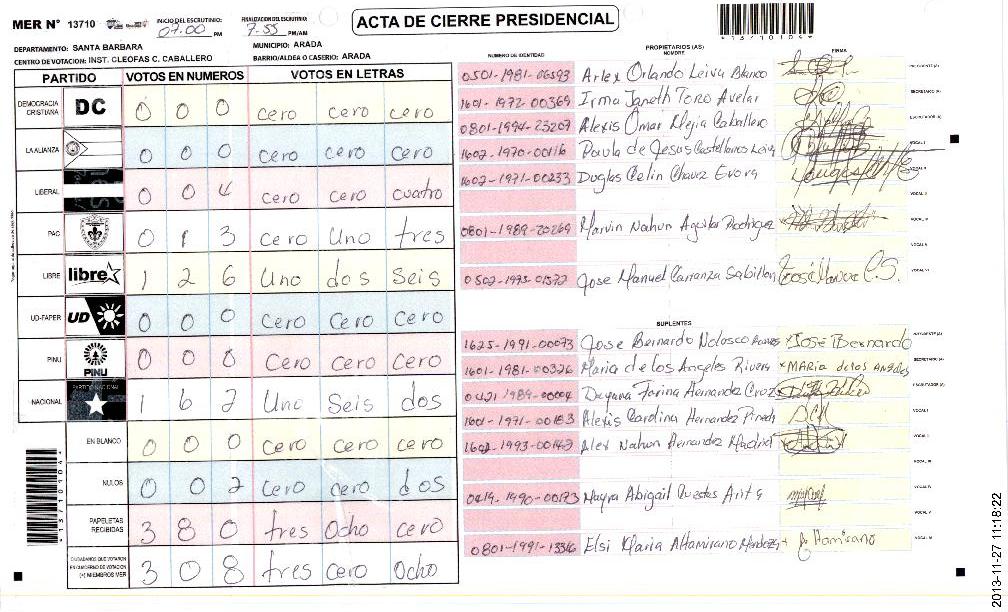 MER N° 13710
INICIO DEL ESCRUTINIO: 07:00 PM
FINALIZACION DEL ESCRUTINIO: 7:55 PM/AM
ACTA DE CIERRE PRESIDENCIAL
*13710109*
DEPARTAMENTO: SANTA BARBARA
MUNICIPIO: ARADA
CENTRO DE VOTACION: INST. CLEOFAS C. CABALLERO
BARRIO/ALDEA O CASERIO: ARADA
PARTIDO VOTOS EN NUMEROS VOTOS EN LETRAS
DEMOCRACIA CRISTIANA DC 0 0 0 cero cero cero
LA ALIANZA 0 0 0 cero cero cero
LIBERAL 0 0 4 cero cero cuatro
PAC 0 1 3 cero Uno tres
LIBRE libre 1 2 6 Uno dos Seis
UD-FAPER UD 0 0 0 Cero Cero Cero
PINU PINU 0 0 0 Cero Cero Cero
NACIONAL PARTIDO NACIONAL 1 6 2 Uno Seis dos
EN BLANCO 0 0 0 cero cero cero
NULOS 0 0 2 cero cero dos
PAPELETAS RECIBIDAS 3 8 0 tres Ocho cero
CIUDADANOS QUE VOTARON EN CUADERNO DE VOTACION (+) MIEMBROS MER 3 0 8 tres cero Ocho
PROPIETARIOS (AS)
NUMERO DE IDENTIDAD NOMBRE FIRMA
0501-1981-06593 Arlex Orlando Leiva Blanco PRESIDENTE (A)
1601-1972-00369 Irma Janeth Toro Avelar SECRETARIO (A)
0801-1994-23207 Alexis Omar Mejia Caballero ESCRUTADOR (A)
1602-1970-00116 Paula de Jesus Castellanos Leiva VOCAL I
1602-1971-00233 Duglas Celin Chavez Evora VOCAL II
VOCAL III
0801-1989-20269 Marvin Nahun Aguilar Rodriguez VOCAL IV
VOCAL V
0502-1993-01572 Jose Manuel Carranza Sabillon VOCAL VI
SUPLENTES
1625-1991-00073 Jose Bernardo Nolasco José Bernardo PRESIDENTE (A)
1601-1981-00326 Maria de los Angeles Rivera MARIA de los ANGELES SECRETARIO (A)
0421-1989-00004 Dayana Farina Hernandez Cruz ESCRUTADOR (A)
1601-1971-00183 Alexis Carolina Hernandez Pineda VOCAL I
1601-1993-00142 Alex Nahun Hernandez Madrid VOCAL II
VOCAL III
0419-1990-00173 Mayra Abigail VOCAL IV
VOCAL V
0801-1991-13316 Elsi Maria Altamirano Mendoza VOCAL VI
*13710109*
2013-11-27 11:18:22